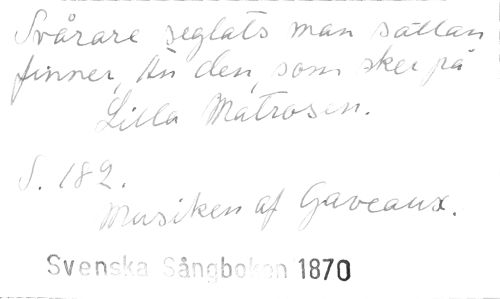 Svårare seglats man sällan
finner, än den, som sker på
Lilla Matrosen.
S. 182.
Musiken af Gaveaux.
Svenska Sångboken 1870